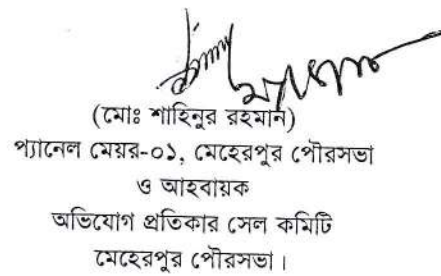 (মোঃ শাহিনুর রহমান)
প্যানেল মেয়র-০১, মেহেরপুর পৌরসভা
ও আহবায়ক
অভিযোগ প্রতিকার সেল কমিটি
মেহেরপুর পৌরসভা।